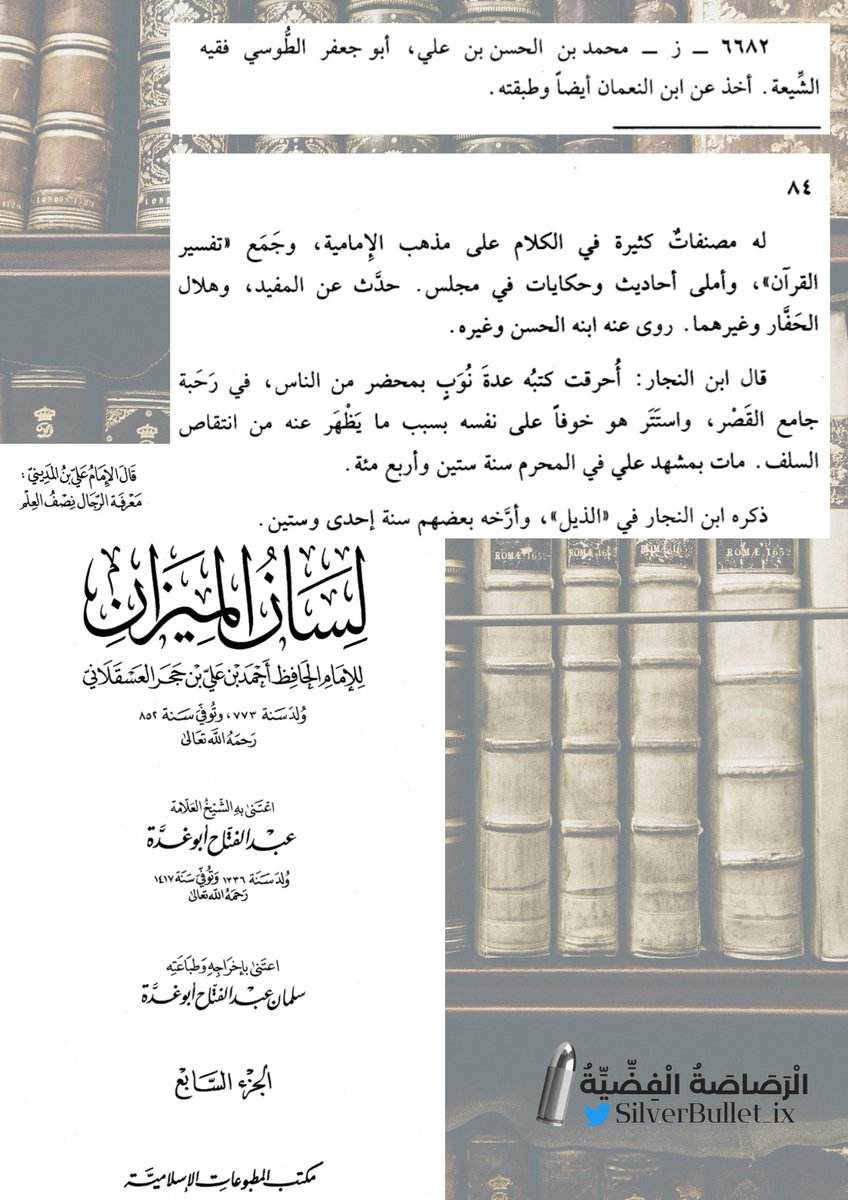 ٦٦٨٢ ــ ز ــ محمد بن الحسن بن علي، أبو جعفر الطُّوسي فقيه
الشِّيعة. أخذ عن ابن النعمان أيضاً وطبقته.
٨٤
له مصنفاتٌ كثيرة في الكلام على مذهب الإِمامية، وجَمَع «تفسير
القرآن»، وأملى أحاديث وحكايات في مجلس. حدَّث عن المفيد، وهلال
الحَفَّار وغيرهما. روى عنه ابنه الحسن وغيره.
قال ابن النجار: أُحرقت كتبُه عدةَ نُوَبٍ بمحضر من الناس، في رَحَبة
جامع القَصْر، واستَتَر هو خوفاً على نفسه بسبب ما يَظْهَر عنه من انتقاص
السلف. مات بمشهد علي في المحرم سنة ستين وأربع مئة.
ذكره ابن النجار في «الذيل»، وأرَّخه بعضهم سنة إحدى وستين.
قَالَ الإِمَامُ عَلِيُّ بْنُ المَدِينِيّ:
مَعْرِفَة الرِّجَال نِصْفُ العِلْم
لِسَانُ المِيزَانِ
لِلإِمَامِ الحَافِظِ أَحْمَد بْن عَلِيّ بْن حَجَر العَسْقَلَانِيّ
وُلِدَ سَنَة ٧٧٣، وَتُوُفِّيَ سَنَة ٨٥٢
رَحِمَهُ اللَّه تعَالىٰ
اعْتَنىٰ بِهِ الشَّيْخُ العَلَّامَة
عَبْد الفَتَّاح أَبُو غُدَّة
وُلِدَ سَنَة ١٣٣٦ وَتُوُفِّيَ سَنَة ١٤١٧
رَحِمَهُ اللَّه تعَالىٰ
اعتَنىٰ بِإخْرَاجِهِ وَطِبَاعَتِهِ
سَلمَان عَبْد الفَتَّاح أَبُو غُدَّة
الجُزْء السَّابِع
مَكتَب المَطبُوعَات الإِسْلَاميَّة
ROMÆ 1652 ROMÆ 16 ROMÆ 165 ROMÆ 1652
الْرَصَاصَةُ الْفِضِّيَّةُ
SilverBullet_ix